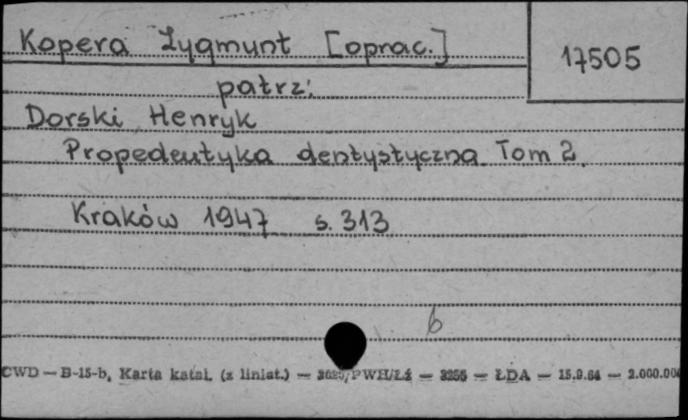 Kopera Zygmunt [oprac.]
17505
patrz:
Dorski Henryk
Propedeutyka dentystyczna Tom 2.
Kraków 1947 s. 313
6
CWD — B-15-b, Karta katal. (z liniat.) — PWH/Łź — 3255 — ŁDA — 15.9.64 — 2.000.000